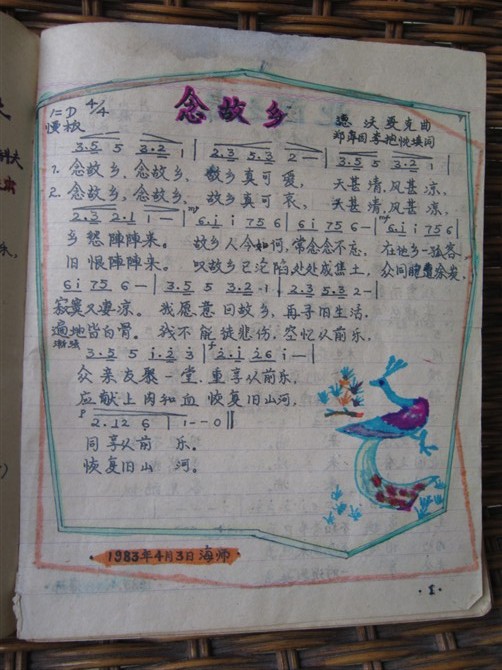 念故乡
1=D 4/4
慢板
德沃夏克曲
邓寿国李抱忱填词
3.5 5 3.2 1 | 2.3 5.3 2 — | 3.5 5 3.2 1 |
1. 念故乡,念故乡、故乡真可爱, 天甚清,风甚凉,
2. 念故乡,念故乡、故乡真可哀、 天甚清,风甚凉,
2.3 2.1 1 — | mp 6.i i 756 | 6 i 756 — | mf 6.i i 756 |
乡愁阵阵来。 故乡人今如何,常念念不忘, 在他乡一孤客
旧恨阵阵来。 叹故乡已沦陷处处成焦土,众同胞遭惨杀,
6 i 756 — | 3.5 5 3.2 1 | 2.3 5.3 2 — |
寂寞又凄凉。 我愿意回故乡,再寻旧生活,
遍地皆白骨。 我不能徒悲伤,空忆从前乐,
渐强
3.5 5 i.2 3 | f 2.i 26 i — |
众亲友聚一堂,重享从前乐,
应献上肉和血 恢复旧山河,
P 2.12 6 | 1 — — 0 ‖
同享从前 乐。
恢复旧山 河。
· 1983年4月3日海师 ·
· 1 ·
科夫